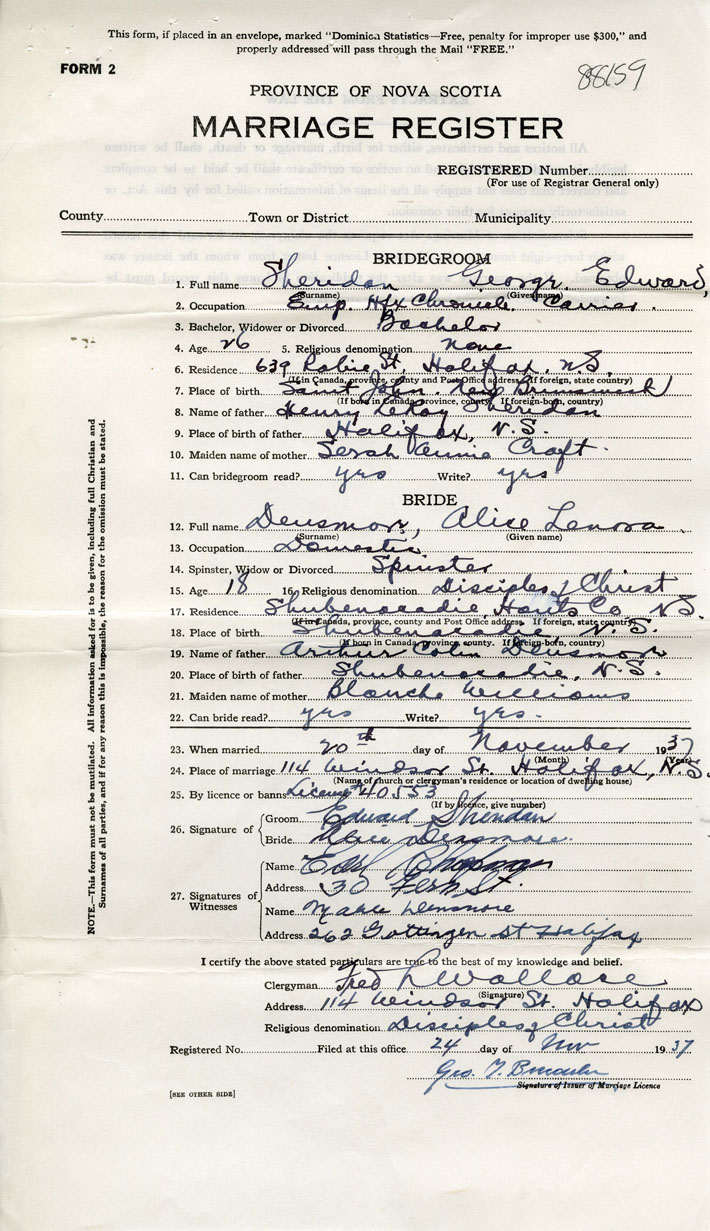 This form, if placed in an envelope, marked "Dominica Statistics—Free, penalty for improper use $300," and
properly addressed will pass through the Mail "FREE."
FORM 2
88159
PROVINCE OF NOVA SCOTIA
MARRIAGE REGISTER
REGISTERED Number
(For use of Registrar General only)
County Town or District Municipality
BRIDEGROOM
1. Full name Sheridan George Edward,
(Surname) (Given name)
2. Occupation Emp. Hfx Chronicle Carrier.
3. Bachelor, Widower or Divorced Bachelor
4. Age 26 5. Religious denomination None
6. Residence 639 Robie St. Halifax, N.S.
(If in Canada, province, county and Post Office address. If foreign, state country)
7. Place of birth Saint John. New Brunswick
(If born in Canada, province, county. If foreign-born, country)
8. Name of father Henry LeRoy Sheridan
9. Place of birth of father Halifax, N.S.
10. Maiden name of mother Sarah Annie Craft.
11. Can bridegroom read? yes Write? yes
BRIDE
12. Full name Densmore, Alice Lenora
(Surname) (Given name)
13. Occupation Domestic
14. Spinster, Widow or Divorced Spinster
15. Age 18 16. Religious denomination Disciples of Christ
17. Residence Shubenacadie, Hants Co N.S.
(If in Canada, province, county and Post Office address. If foreign, state country)
18. Place of birth Shubenacadie N.S.
(If born in Canada, province, county. If foreign-born, country)
19. Name of father Arthur Colin Densmore
20. Place of birth of father Shubenacadie, N.S.
21. Maiden name of mother Blanche Williams
22. Can bride read? yes Write? yes.
23. When married 20th day of November 1937
(Month) (Year)
24. Place of marriage 114 Windsor St. Halifax, N.S.
(Name of church or clergyman's residence or location of dwelling house)
25. By licence or banns License #40553
(If by licence, give number)
26. Signature of Groom Edward Sheridan
Bride Alice Densmore.
27. Signatures of Witnesses
Name Earl Chapman
Address 30 Fern St.
Name Densmore
Address 262 Gottingen St Halifax
I certify the above stated particulars are true to the best of my knowledge and belief.
Clergyman Fred Wallace
(Signature)
Address 114 Windsor St. Halifax
Religious denomination Disciples of Christ
Registered No. Filed at this office 24 day of Nov 1937
Geo. T.
Signature of Issuer of Marriage Licence
[SEE OTHER SIDE]
NOTE.—This form must not be mutilated. All information asked for is to be given, including full Christian and
Surnames of all parties, and if for any reason this is impossible, the reason for the omission must be stated.